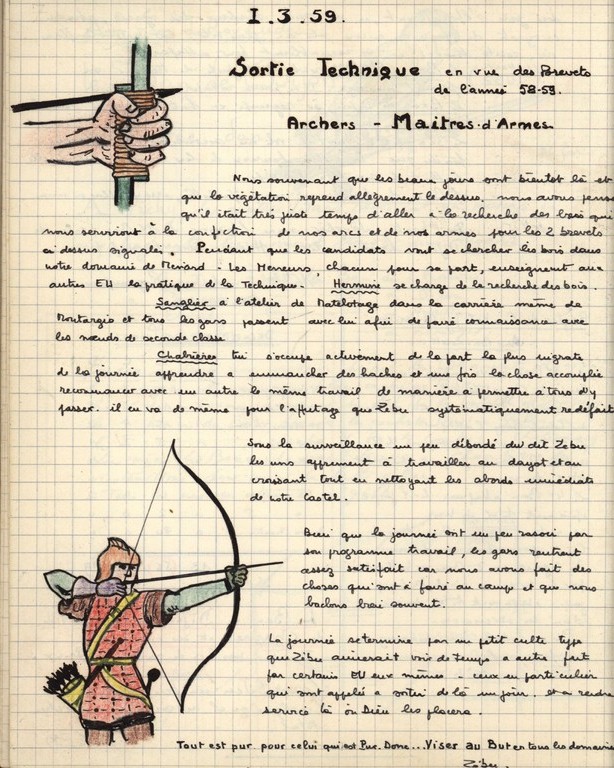 1.3.59.
Sortie Technique en vue des Brevets
de l'année 58-59.
Archers - Maitres-d'Armes
Nous souvenant que les beaux jours sont bientot là et
que la végétation reprend allègrement le dessus, nous avons pensé
qu'il était très juste temps d'aller à la recherche des bois qui
nous serviront à la confection de nos arcs et de nos armes pour les 2 brevets
ci dessus signalés. Pendant que les candidats vont se chercher les bois dans
notre domaine de Menard - Les Meneurs, chacun pour sa part, enseignent aux
autres EU la pratique de la Technique. Hermine se charge de la recherche des bois.
Sanglier à l'atelier de Matelotage dans la carrière même de
Montargis et tous les gars passent avec lui afin de faire connaissance avec
les nœuds de seconde classe
Chabrières lui s'occupe activement de la part la plus ingrate
de la journée apprendre à emmancher des haches et une fois la chose accomplie
recommencer avec un autre le même travail de manière à permettre à tous d'y
passer. il en va de même pour l'affutage que Zébu systématiquement redéfait
Sous la surveillance un peu débordé du dit Zébu
les uns apprennent à travailler au dayot et au
croissant tout en nettoyant les abords immédiats
de notre Castel.
Bien que la journée ont un peu rasoir par
son programme travail, les gars rentrent
assez satisfait car nous avons fait des
choses qui sont à faire au camp et que nous
baclons trai souvent.
La journée se termine par un petit culte type
que Zébu aimerait voir de temps a autre fait
par certains EU eux mêmes - ceux en particulier
qui sont appelés a sortir de là un jour. et a rendre
service là où Dieu les placera.
Tout est pur pour celui qui est Pur. Donc...Viser au But en tous les domaines
Zébu.